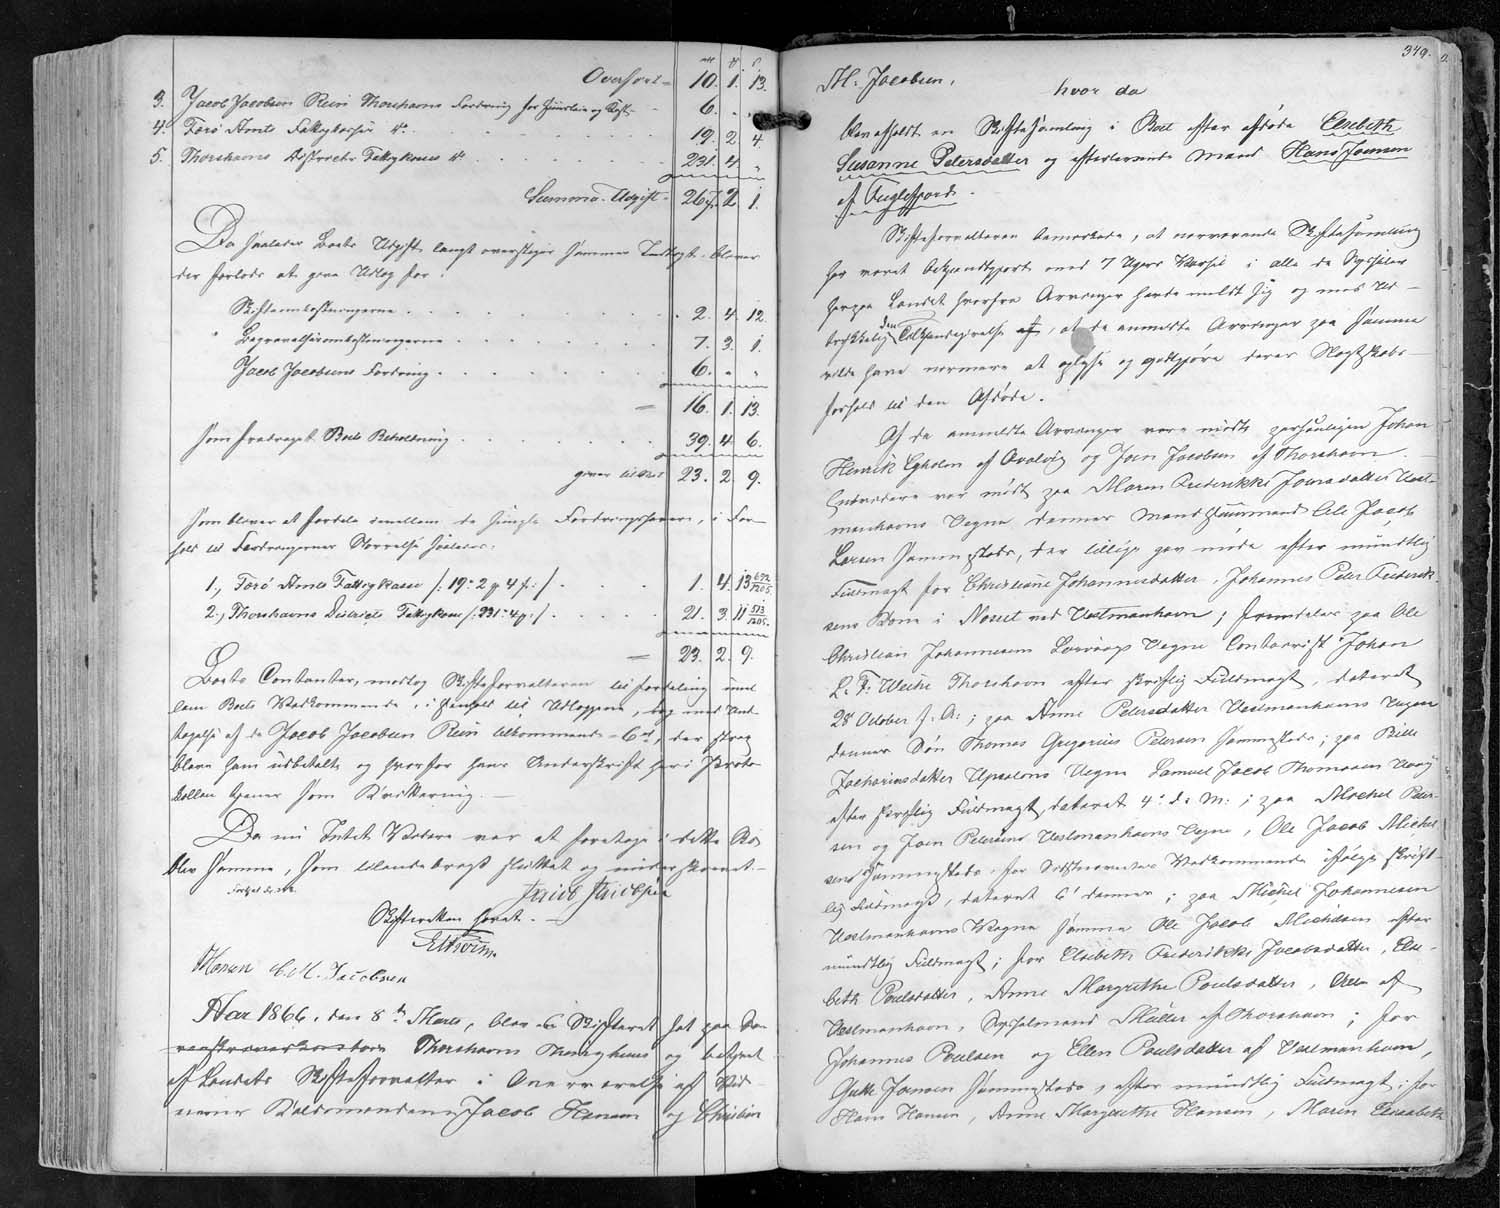 Overført 10. 1. 13.
3. Jacob Jacobsen Rein Thorshavns Fordring for Huusleie og Kost 6. " "
4. Færø Amts Fattigkasse do 19. 2. 4.
5. Thorshavns Districts Fattigkasse do 231. 4. "
Summa Udgift 267. 2. 1.
Da saaledes Boets Udgift langt overstiger sammes Indtægt bliver
der saaledes at gøre Udlæg for:
Skifteomkostningerne 2. 4. 12.
" Begravelsesomkostningerne 7. 3. 1.
Jacob Jacobsens Fordring 6. " "
= 16. 1. 13.
som fradraget Boets Beholdning 39. 4. 6.
giver tilbage 23. 2. 9.
som bliver at fordele imellem de øvrige Fordringshavere, i For-
hold til Fordringernes Størrelse saaledes:
1., Færø Amts Fattigkasse /: 19 " 2 p 4 s :/ 1. 4. 13 692/1205.
2., Thorshavns Districts Fattigkasse /: 231 " 4 p :/ 21. 3. 11 513/1205.
= 23. 2. 9.
Boets Contanter, modtog Skifteforvalteren til Fordeling imel
lem Boets Vedkommende, i Henhold til Udlæggene, dog med Und
tagelse af de Jacob Jacobsen Rein tilkommende 6 rd, der strax
bleve ham udbetalte og hvorfor hans Underskrift her i Proto
kollen tjener som Kvittering.
Da nu Intet Videre var at foretage i dette Bo
blev samme, som tilendebragt sluttet og underskrevet.
Jacob Jacobsen
Skifteretten hævet.
HMoren C. M. Jacobsen
Aar 1866, den 8de Marts, blev Skifteret sat paa
Thorshavns Thinghuus og betjent
af Landets Skifteforvalter i Overværelse af Vid
nerne Kaldsmændene Jacob Hansen og Christian
349.
M. Jacobsen,
hvor da
blev afholdt en Skiftesamling i Boet efter afdøde Elsebeth
Susanne Petersdatter og efterlevende Mand Hans Joensen
af Fuglefjord.
Skifteforvalteren bemærkede, at nærværende Skiftesamling
har været bekjendtgjort med 7 Ugers Varsel i alle de Sysseler
herpaa Landet hvorfra Arvinger havde meldt sig og med Ud-
trykkelig den Tilkjendegivelse af, at de anmeldte Arvinger paa samme
vilde have nærmere at oplyse og godtgjøre deres Slægtskabs-
forhold til den Afdøde.
Af de anmeldte Arvinger vare mødte personligen Johan
Henrik Egholm af Qvalvig og Joen Jacobsen af Thorshavn.
Endvidere var mødt paa Maren Frederikke Joensdatter Vest-
manhavns Vegne dennes Mand Huusmand Ole Jacob
Larsen sammesteds, der tillige gav møde efter mundtlig
Fuldmagt for Christiane Johannesdatter, Johannes Peter Frederik-
sens Kone i Nesset ved Vestmanhavn; fremdeles paa Ole
Christian Johannesens Vegne Contorist Johan
L. F. Weihe Thorshavn efter skriftlig Fuldmagt, dateret
28 October f. A.; paa Anne Petersdatter Vestmanhavns Vegne
dennes Søn Thomas Gregorius Petersen sammesteds; paa Bille
Zachariasdatter Vegne Samuel Jacob Thomasen
efter skriftlig Fuldmagt dateret 4de d. M.; paa Michel Peter-
sen og Joen Petersens Vestmanhavns Vegne, Ole Jacob Michel
sens sammesteds for Vedkommende ifølge skrift-
lig Fuldmagt, dateret 6te dennes; paa Michel Johannesen
Vestmanhavns Vegne samme Ole Jacob Michelsen efter
mundtlig Fuldmagt; for Elsebeth Frederikke Jacobsdatter, Else-
beth Poulsdatter, Anne Margrethe Poulsdatter, alle af
Vestmanhavn, Sysselmand Müller af Thorshavn; for
Johannes Poulsen og Ellen Poulsdatter af Vestmanhavn,
Gutte Joensen sammesteds, efter mundtlig Fuldmagt; for
Hans Hansen, Anne Margrethe Hansen, Maren Elisabeth